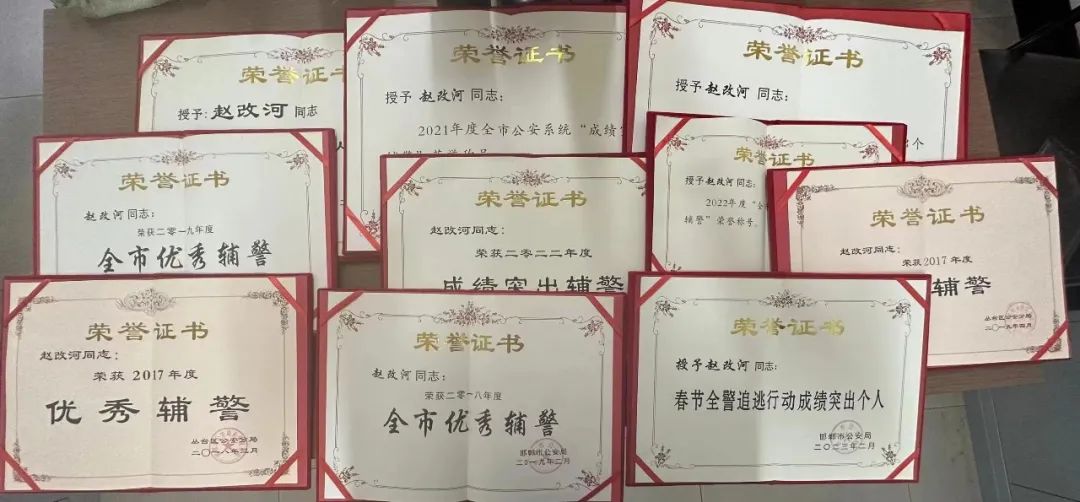 荣誉证书
授予:赵改河 同志
荣誉证书
授予 赵改河 同志:
2021年度全市公安系统“成绩
荣誉证书
授予 赵改河 同志:
出个
荣誉证书
赵改河同志:
荣获二〇一九年度
全市优秀辅警
荣誉证书
赵改河同志:
荣获二〇二二年度
成绩突出辅警
荣誉证书
授予赵改河同志:
2022年度“全
辅警”荣誉称号。
荣誉证书
赵改河同志:
荣获 2017 年度
辅警
丛台区公安分局
二〇一九年四月
荣誉证书
赵改河同志:
荣获 2017 年度
优秀辅警
丛台区公安分局
二〇一八年三月
荣誉证书
赵改河 同志:
荣获二〇一八年度
全市优秀辅警
邯郸市公安局
二〇一九年二月
荣誉证书
授予赵改河 同志:
春节全警追逃行动成绩突出个人
邯郸市公安局
二〇二三年二月